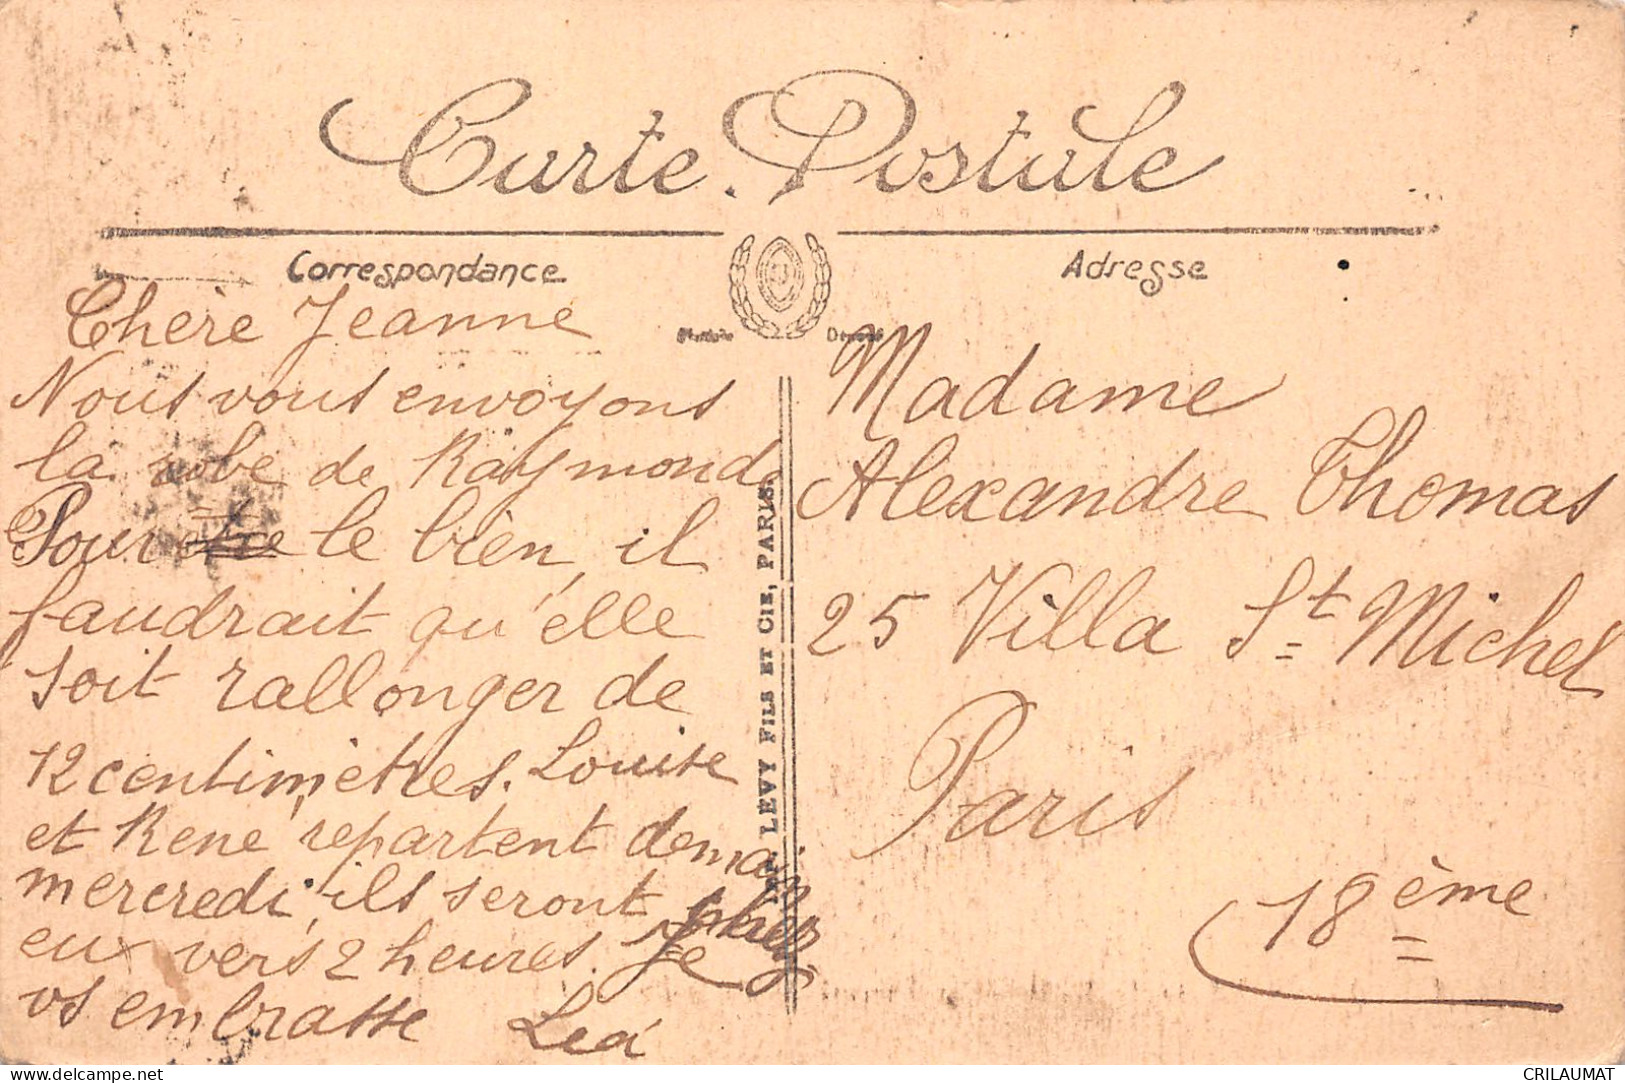 Carte Postale
Correspondance
Adresse
Chère Jeanne
Nous vous envoyons
la robe de Raymonde
Pour le bien, il
faudrait qu'elle
soit rallonger de
12 centimètres. Louise
et René repartent demain
mercredi, ils seront chez
eux vers 2 heures. Je
vs embrasse Léa
LÉVY FILS ET CIE, PARIS.
Madame
Alexandre Thomas
25 Villa St Michel
Paris
18ème
CRILAUMAT